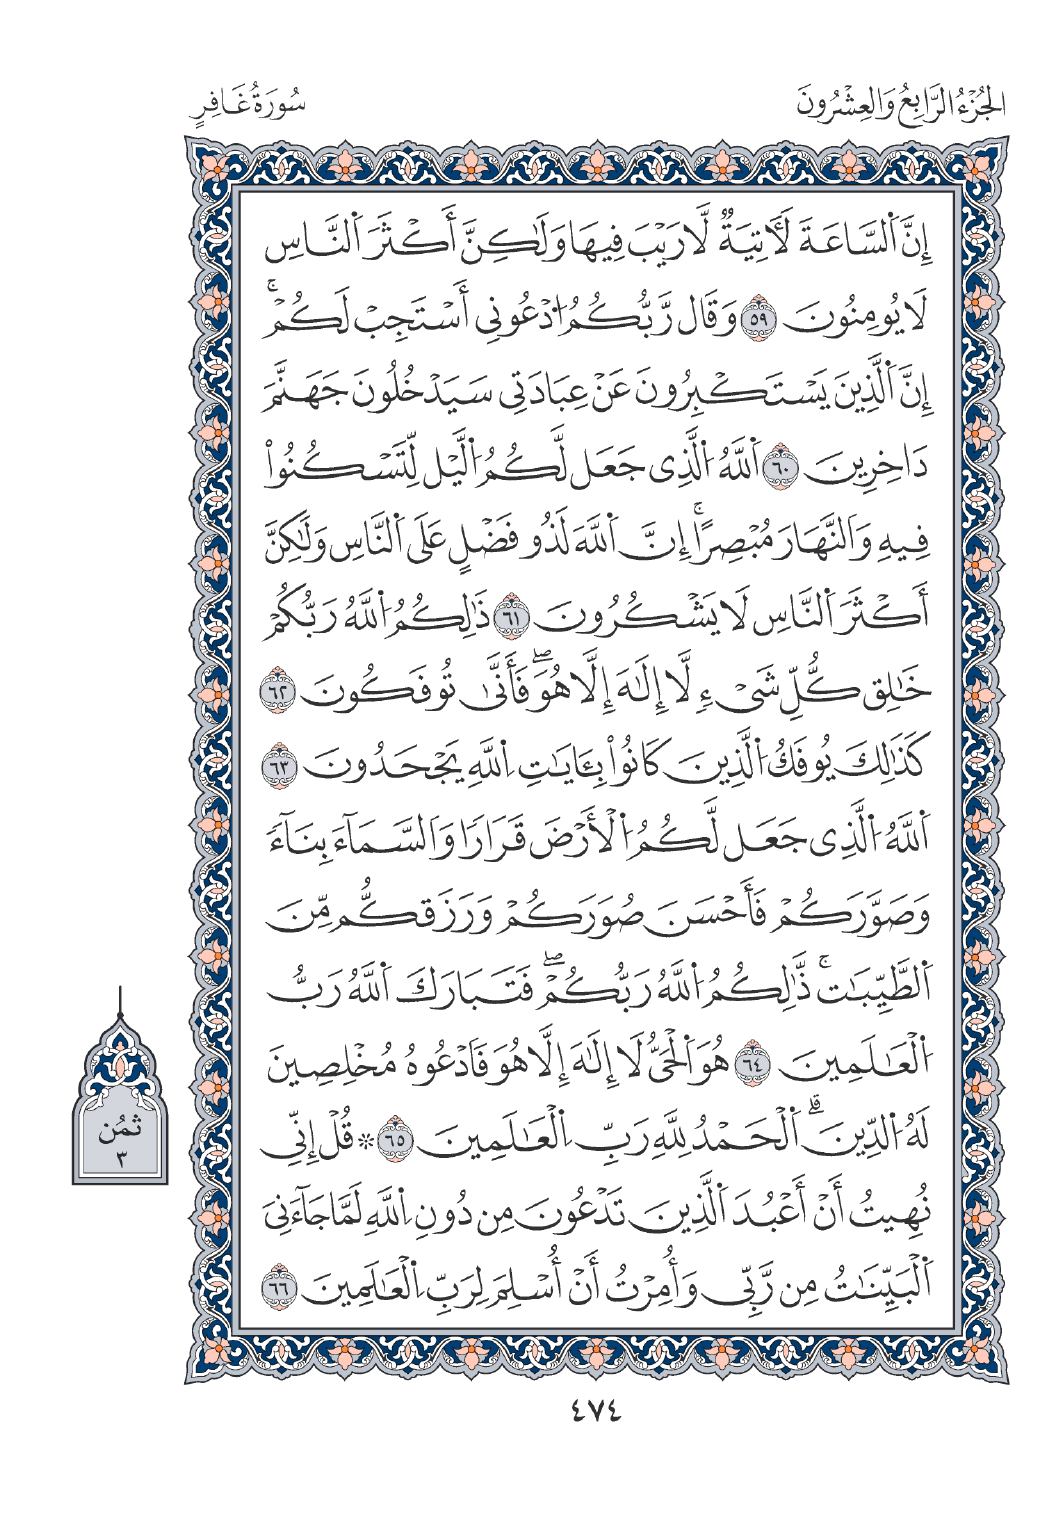 الجُزْءُ الرَّابِعُ وَالعِشْرُونَ
سُورَةُ غَافِرٍ
إِنَّ اَ۬لسَّاعَةَ لَأٓتِيَةٞ لَّا رَيْبَ فِيهَا وَلَٰكِنَّ أَكْثَرَ اَ۬لنَّاسِ
لَا يُومِنُونَۖ ٥٩ وَقَال رَّبُّكُمُ اُ۟دْعُونِي أَسْتَجِبْ لَكُمْۚ
إِنَّ اَ۬لَّذِينَ يَسْتَكْبِرُونَ عَنْ عِبَادَتِي سَيُدْخَلُونَ جَهَنَّمَ
دَاخِرِينَ ٦٠ اَ۬للَّهُ اُ۬لَّذِي جَعَل لَّكُمُ اُ۬لَّيْل لِّتَسْكُنُواْ
فِيهِ وَالنَّهَارَ مُبْصِرًاۚ إِنَّ اَ۬للَّهَ لَذُو فَضْلٍ عَلَى اَ۬لنَّاسِ وَلَٰكِنَّ
أَكْثَرَ اَ۬لنَّاسِ لَا يَشْكُرُونَ ٦١ ذَٰلِكُمُ اُ۬للَّهُ رَبُّكُمْ
خَٰلِق كُّلِّ شَيْءٖ لَّا إِلَٰهَ إِلَّا هُوَۖ فَأَنَّىٰ تُوفَكُونَ ٦٢
كَذَٰلِكَ يُوفَكُ اُ۬لَّذِينَ كَانُواْ بِـَٔايَٰتِ اِ۬للَّهِ يَجْحَدُونَ ٦٣
اَ۬للَّهُ اُ۬لَّذِي جَعَل لَّكُمُ اُ۬لْأَرْضَ قَرَارٗا وَالسَّمَآءَ بِنَآءٗ
وَصَوَّرَكُمْ فَأَحْسَنَ صُوَرَكُمْ وَرَزَقكُّم مِّنَ
اَ۬لطَّيِّبَٰتۚ ذَّٰلِكُمُ اُ۬للَّهُ رَبُّكُمْۖ فَتَبَارَكَ اَ۬للَّهُ رَبُّ
اُ۬لْعَٰلَمِينَ ٦٤ هُوَ اَ۬لْحَيُّ لَا إِلَٰهَ إِلَّا هُوَ فَادْعُوهُ مُخْلِصِينَ
لَهُ اُ۬لدِّينَۗ اَ۬لْحَمْدُ لِلَّهِ رَبِّ اِ۬لْعَٰلَمِينَ ٦٥ ۞ قُلْ إِنِّي
نُهِيتُ أَنْ أَعْبُدَ اَ۬لَّذِينَ تَدْعُونَ مِن دُونِ اِ۬للَّهِ لَمَّا جَآءَنِيَ
اَ۬لْبَيِّنَٰتُ مِن رَّبِّي وَأُمِرْتُ أَنْ أُسْلِمَ لِرَبِّ اِ۬لْعَٰلَمِينَ ٦٦
ثُمُن
٣
٤٧٤